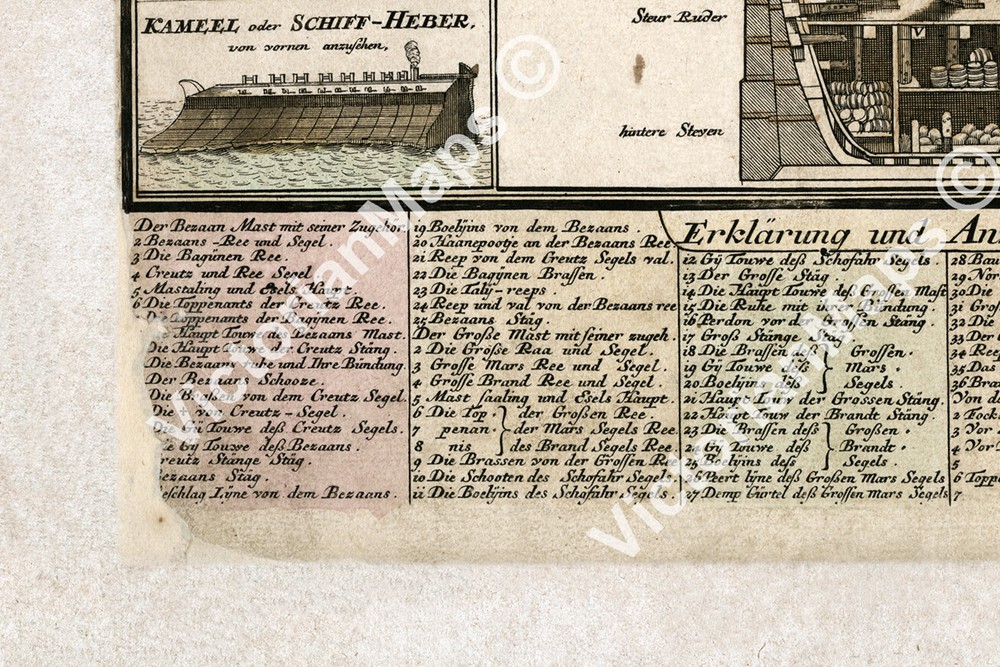 KAMEEL oder SCHIFF-HEBER,
von vornen anzusehen,
Steur Ruder
hintere Steven
V
Der Bezaan Mast mit seiner Zugehor
2 Bezaans-Ree und Segel.
3 Die Bagÿnen Ree.
4 Creutz und Ree Segel
5 Mastaling und Esels Haupt.
6 Die Toppenants der Creutz Ree.
Die Toppenants der Bagÿnen Ree.
Haupt Touw des Bezaans Mast.
Die Haupt Touwe der Creutz Stäng.
Die Bezaans ruhe und Ihre Bündung.
Der Bezaans Schooze.
Die Braßen von dem Creutz Segel.
Die von Creutz-Segel.
Die Gÿ Touwe deß Creutz Segels.
Gÿ Touwe deß Bezaans.
Creutz Stänge Stäg.
Bezaans Stäg.
Beschlag Lÿne von dem Bezaans.
19 Boelÿins von dem Bezaans.
20 Haanepootje an der Bezaans Ree
21 Reep von dem Creutz Segels val.
22 Die Bagÿnen Brassen.
23 Die Talÿ-reeps.
24 Reep und val von der Bezaans ree
25 Bezaans Stäg.
Der Große Mast mit seiner zugeh.
2 Die Große Raa und Segel.
3 Große Mars Ree und Segel.
4 Große Brand Ree und Segel.
5 Mast saaling und Esels Haupt.
6 Die Top- der Großen Ree.
7 penan- der Mars Segels Ree.
8 nis des Brand Segels Ree.
9 Die Brassen von der Großen Re
10 Die Schooten des Schofahr Segels.
11 Die Boelÿins des Schofahr Segels.
Erklärung und An
12 Gÿ Touwe deß Schofahr Segels.
13 Der Große Stäg.
14 Die Haupt Touwe deß Großen Mast
15 Die Ruhe mit ihrer Bündung.
16 Perdon vor der Großen Stäng.
17 Groß Stänge Stäg.
18 Die Brassen deß Großen.
19 Gÿ Touwe deß Mars.
20 Boelÿins deß Segels.
21 Haupt Touw der Grossen Stäng.
22 Haupt Touw der Brandt Stäng.
23 Die Brassen deß Großen.
24 Gÿ Touwe deß Brandt.
25 Boelÿins deß Segels.
26 Peert lÿne deß Großen Mars Segels
27 Demp Gürtel deß Großen Mars Segels
28 Bau
29 Nor
30 Die
31 Gro
32 Die
33 Der
34 Ree
35 Das
36 Bra
Von de
2 Fock
3 Vor
4 Vor
5
6 Toppe
7
© VictorianMaps
© VictorianMaps
VictorianMaps
VictorianMaps